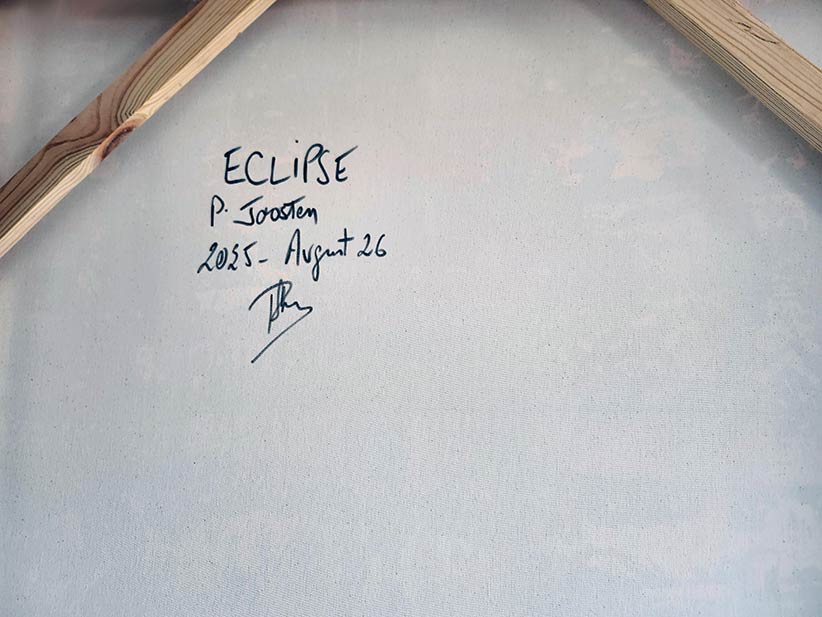 ECLiPSE
P. Joosten
2025- August 26